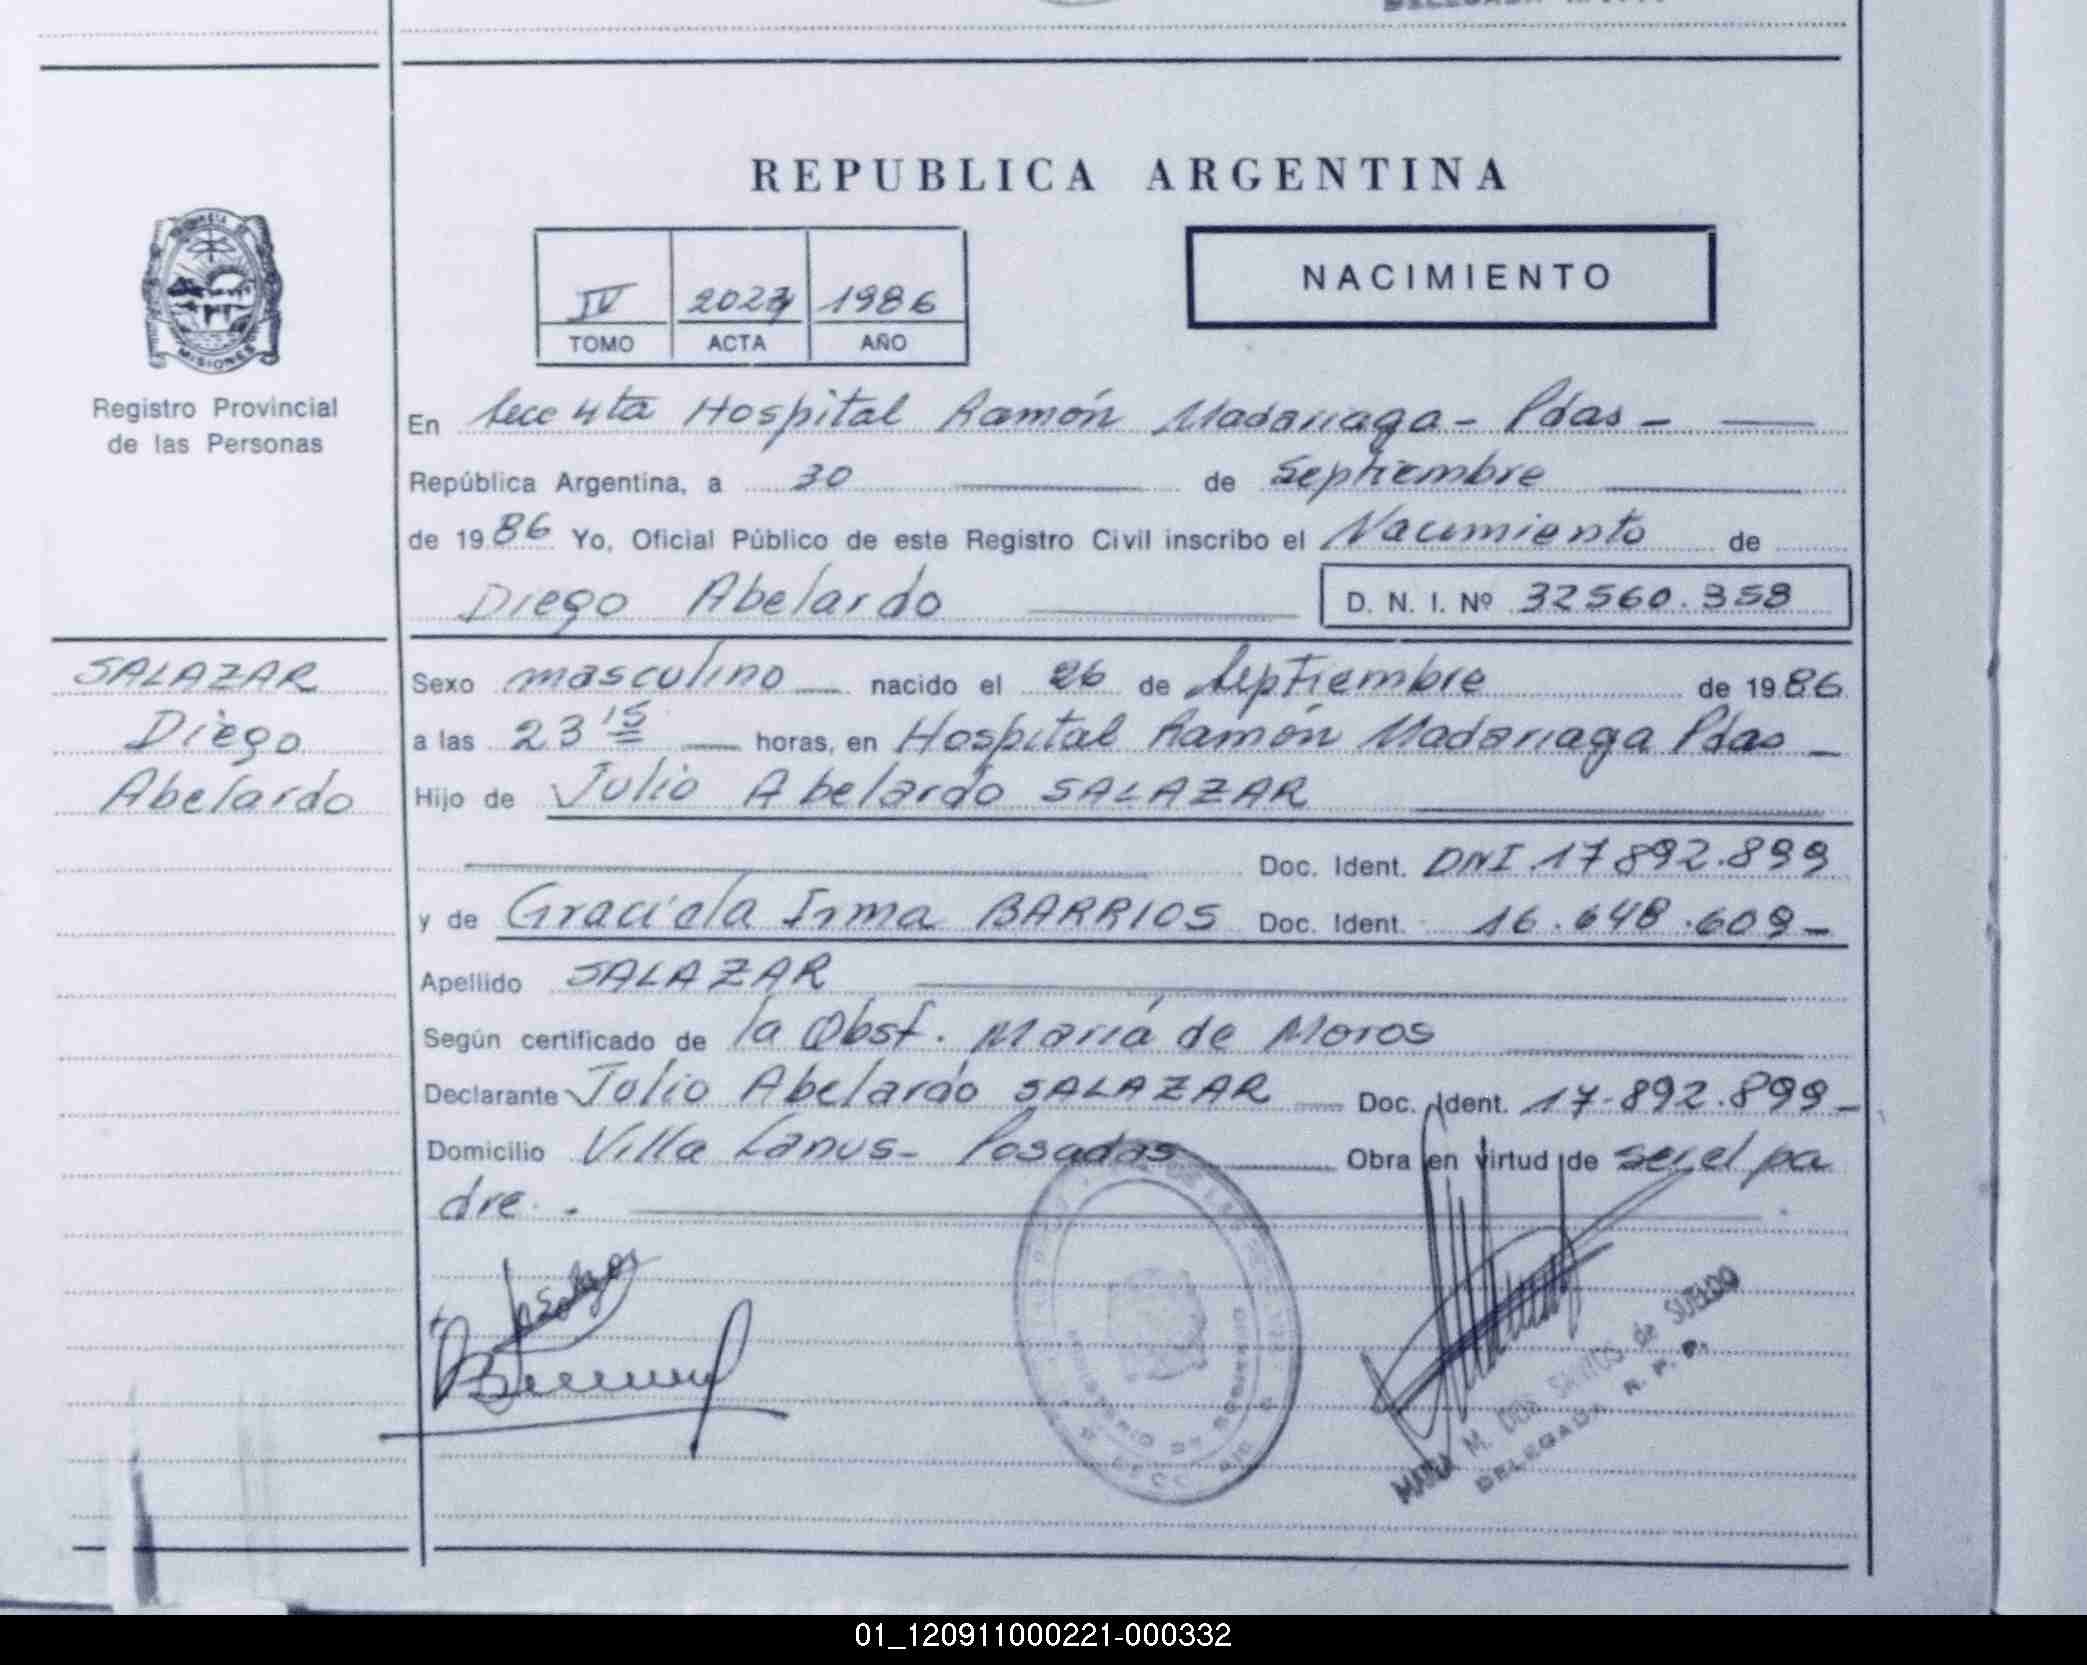 REPUBLICA ARGENTINA
NACIMIENTO
IV 1986
TOMO ACTA AÑO
MISIONES
Registro Provincial
de las Personas
En Secc 4ta Hospital Ramón Madariaga - Pdas -
República Argentina, a 30 de Septiembre
de 1986 Yo, Oficial Público de este Registro Civil inscribo el Nacimiento de
Diego Abelardo D. N. I. Nº 32560.358
SALAZAR
Diego
Abelardo
Sexo masculino nacido el 26 de Septiembre de 1986
a las 23 15 horas, en Hospital Ramón Madariaga Pdas -
Hijo de Julio Abelardo SALAZAR
Doc. Ident. DNI 17892.899
y de Graciela Irma BARRIOS Doc. Ident. 16.648.609-
Apellido SALAZAR
Según certificado de la Obst. María de Moros
Declarante Julio Abelardo SALAZAR Doc. Ident. 17-892.899-
Domicilio Villa Lanus - Posadas Obra en virtud de ser el pa
dre.-
MARIA M. DOS SANTOS de SUELDO
DELEGADA R. P. P.
01_120911000221-000332